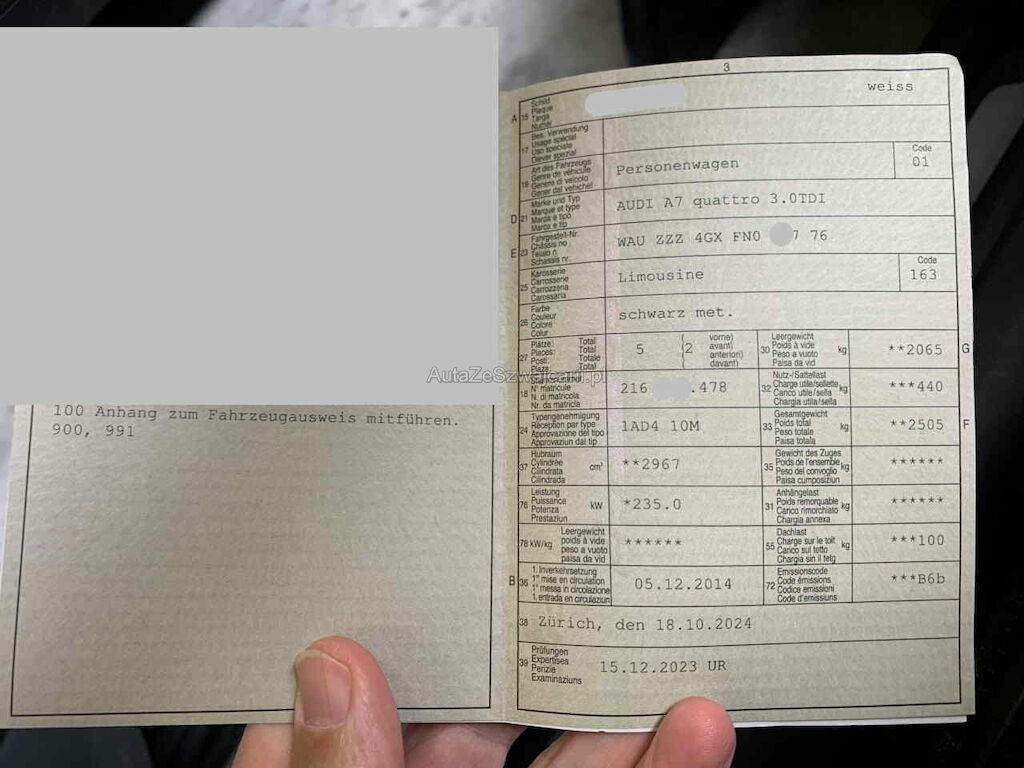 100 Anhang zum Fahrzeugausweis mitführen.
900, 991
3
weiss
A 15 Schild
Plaque
Targa
Numer
17 Bes. Verwendung
Usage spécial
Uso speciale
Diever spezial
19 Art des Fahrzeugs
Genre de véhicule
Genere di veicolo
Gener dal vehichel
Personenwagen
Code
01
D 21 Marke und Typ
Marque et type
Marca e tipo
Marca e tip
AUDI A7 quattro 3.0TDI
E 23 Fahrgestell-Nr.
Châssis no
Telaio n.
Schassis nr.
WAU ZZZ 4GX FN0 7 76
25 Karosserie
Carrosserie
Carrozzeria
Carossaria
Limousine
Code
163
26 Farbe
Couleur
Colore
Colur
schwarz met.
27 Plätze: Total
Places: Total
Posti: Totale
Plazs: Total
5 (2 vorne)
avant)
anteriori)
davant)
30 Leergewicht
Poids à vide
Peso a vuoto
Paisa da vid
kg
**2065
G
18 Stammnummer
N° matricule
N. di matricola
Nr. da matricla
216 .478
32 Nutz-/Sattellast
Charge utile/sellette
Carico utile/sella
Chargia utila/sella
kg
***440
24 Typengenehmigung
Réception par type
Approvazione del tipo
Approvaziun dal tip
1AD4 10M
33 Gesamtgewicht
Poids total
Peso totale
Paisa totala
kg
**2505
F
37 Hubraum
Cylindrée
Cilindrata
Cilindrada
cm³
**2967
35 Gewicht des Zuges
Poids de l'ensemble
Peso del convoglio
Paisa cumposiziun
kg
******
76 Leistung
Puissance
Potenza
Prestaziun
kW
*235.0
31 Anhängelast
Poids remorquable
Carico rimorchiato
Chargia annexa
kg
******
78 kW/kg Leergewicht
poids à vide
peso a vuoto
paisa da vid
******
55 Dachlast
Charge sur le toit
Carico sul tetto
Chargia sin il tetg
kg
***100
B 36 1. Inverkehrsetzung
1re mise en circulation
1a messa in circolazione
1. entrada en circulaziun
05.12.2014
72 Emissionscode
Code émissions
Codice emissioni
Code d'emissiuns
***B6b
38 Zürich, den 18.10.2024
39 Prüfungen
Expertises
Perizie
Examinaziuns
15.12.2023 UR
AutaZeSzwajcarii.pl